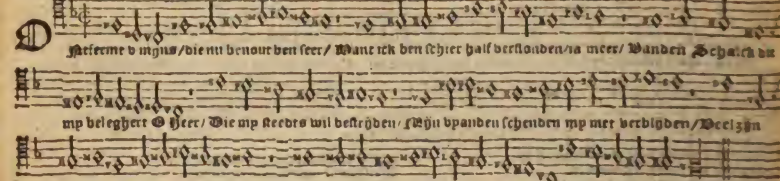 Ontfermt u mijns/die nu benout ben seer/ Want ick ben schier half verslonden/ia meer/ Vanden Schalck die
my beleghert O Heer/ Die my steets wil bestrijden/ Mijn vyanden schenden my met verblijden/Veel zijn